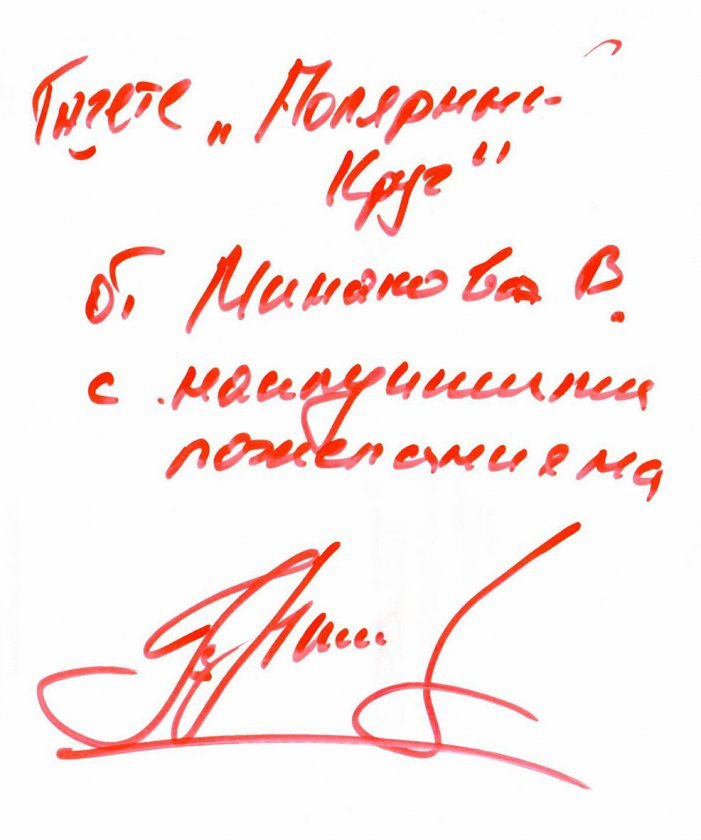 Газете „Полярный
Круг"
от Минакова В.
с наилучшими
пожеланиями